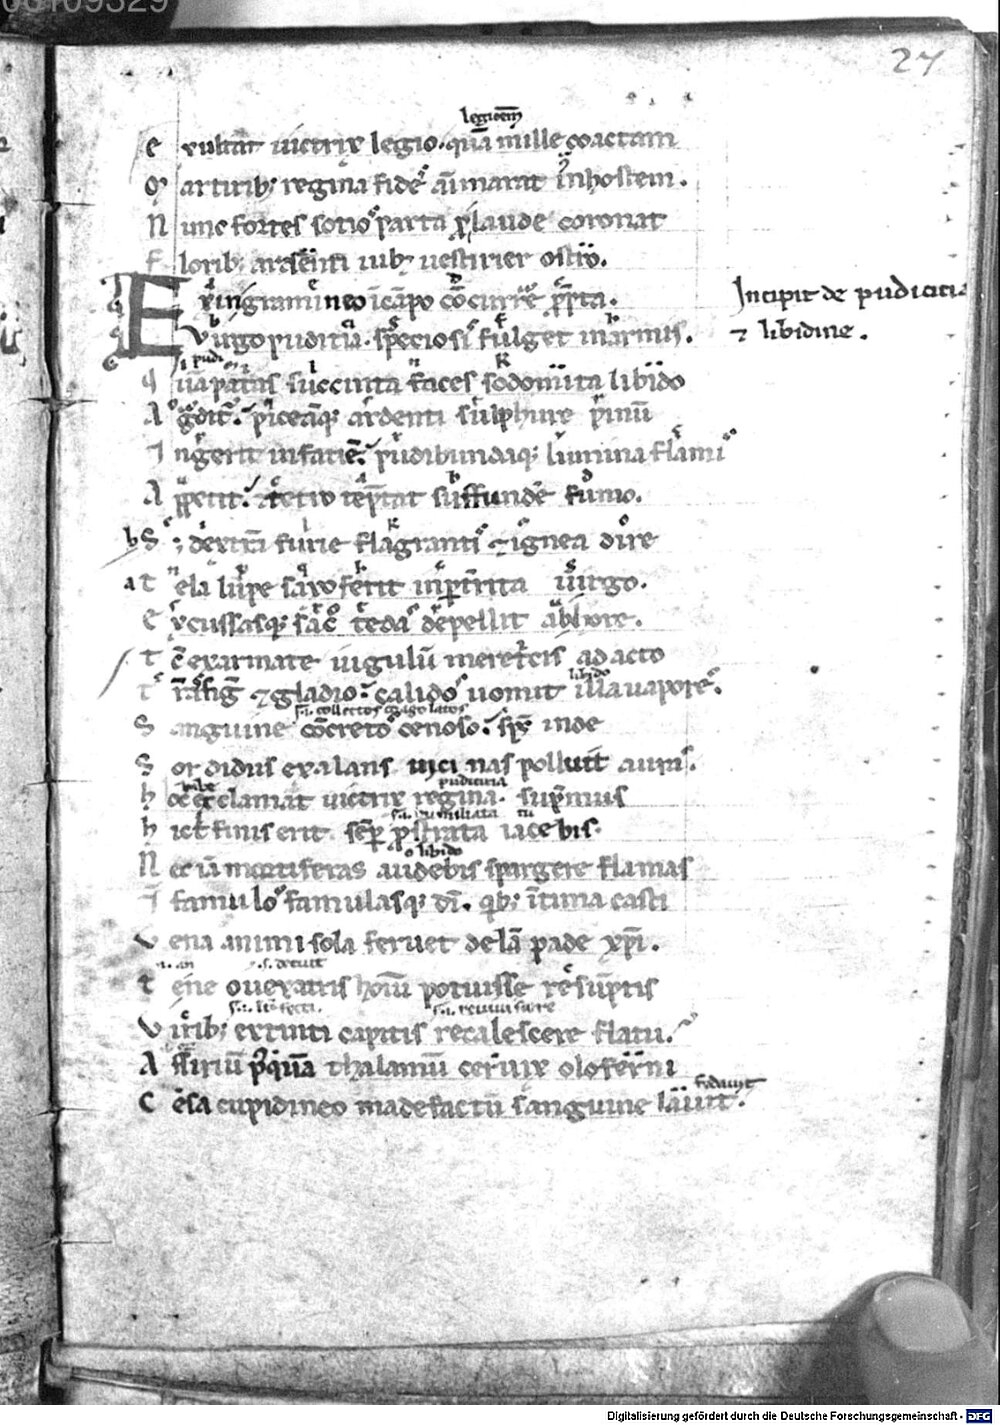 27
legionem
E xultat uictrix legio. quā mille coactam
M artirib; regina fides aīmarat inhostem.
N unc fortes sotios parta p laude coronat
F lorib; ardenti iub; uestirier ostro.
E xin gramineo icāpo cōcurrere p̄pta.
Incipit de pudicitia
Virgo puditia. speciosis fulget inarmis.
⁊ libidine.
q uā patrias succinta faces sodomita libido
A gḡdit. piceāq; ardenti sulphure pinū
I ngerit infatiē. pudibundaq; lumina flāmis
A ppetit. ⁊ tetro tēptat suffundē fumo.
b S; dextrā furie flagrantis ⁊ ignea dire
a t ela lupe saxo ferit inp̄trrita uirgo.
E xcussasq; sac̄ tedas depellit ab hore.
T c̄ exarmate iugulū meretcis adacto
libido
T rāsfig̅ ⁊ gladio. calidos uomit illa uapores.
s. collectos coagolatos
S anguine cōcretos cenoso. sp̄s inde
S ordidus exalans uicinas polluit auras.
h oc exclamat uictrix regina. sup̄mus
pudicicia
h ic t finis erit. semp̄ pstrata iacebis.
libido
N ec iā mortiferas audebis spargere flāmas
I famulos famulasq; dī. qb; ītima casti
V ena animi sola feruet de lāpade xp̄i.
s. decuit
t ene o uexatris hoīm potuisse resūptis
V irib; extinti capitis recalescere flatu.
A ssiriū pꝰquā thalamū ceruix oloferni
fedauit
C esa cupidineo madefactū sanguine lauit.
06109329
Digitalisierung gefördert durch die Deutsche Forschungsgemeinschaft - DFG